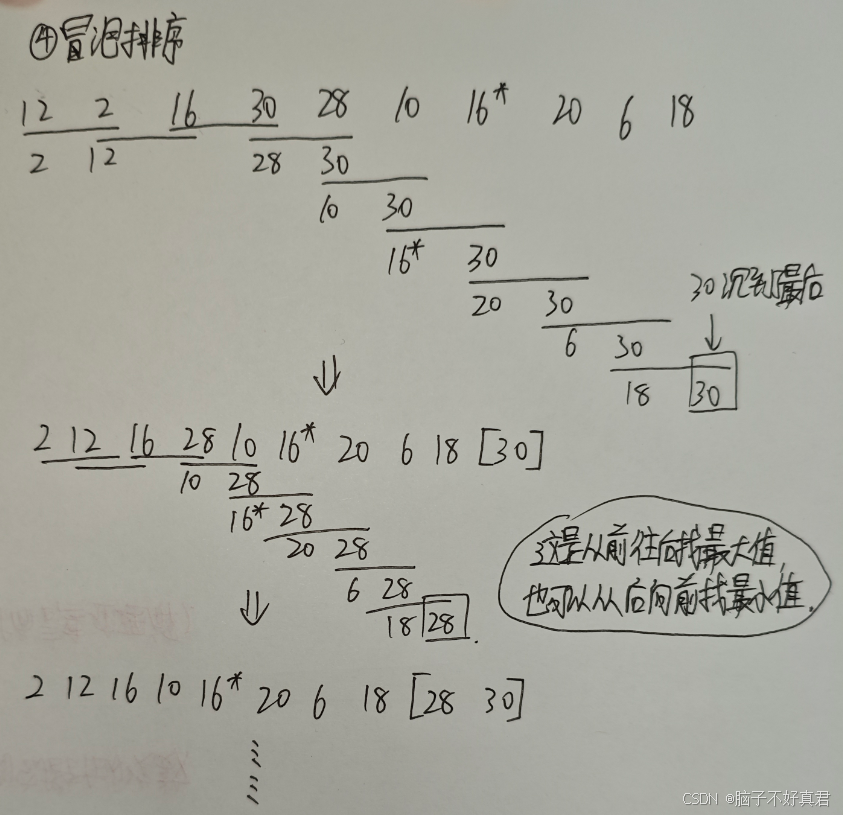 ④冒泡排序
12 2 16 30 28 10 16* 20 6 18
2 12 28 30
10 30
16* 30
30沉到最后
20 30
6 30
18 30
2 12 16 28 10 16* 20 6 18 [30]
10 28
16* 28
20 28
6 28
18 28.
这是从前往后找最大值,
也可以从后向前找最小值.
2 12 16 10 16* 20 6 18 [28 30]
CSDN @脑子不好真君